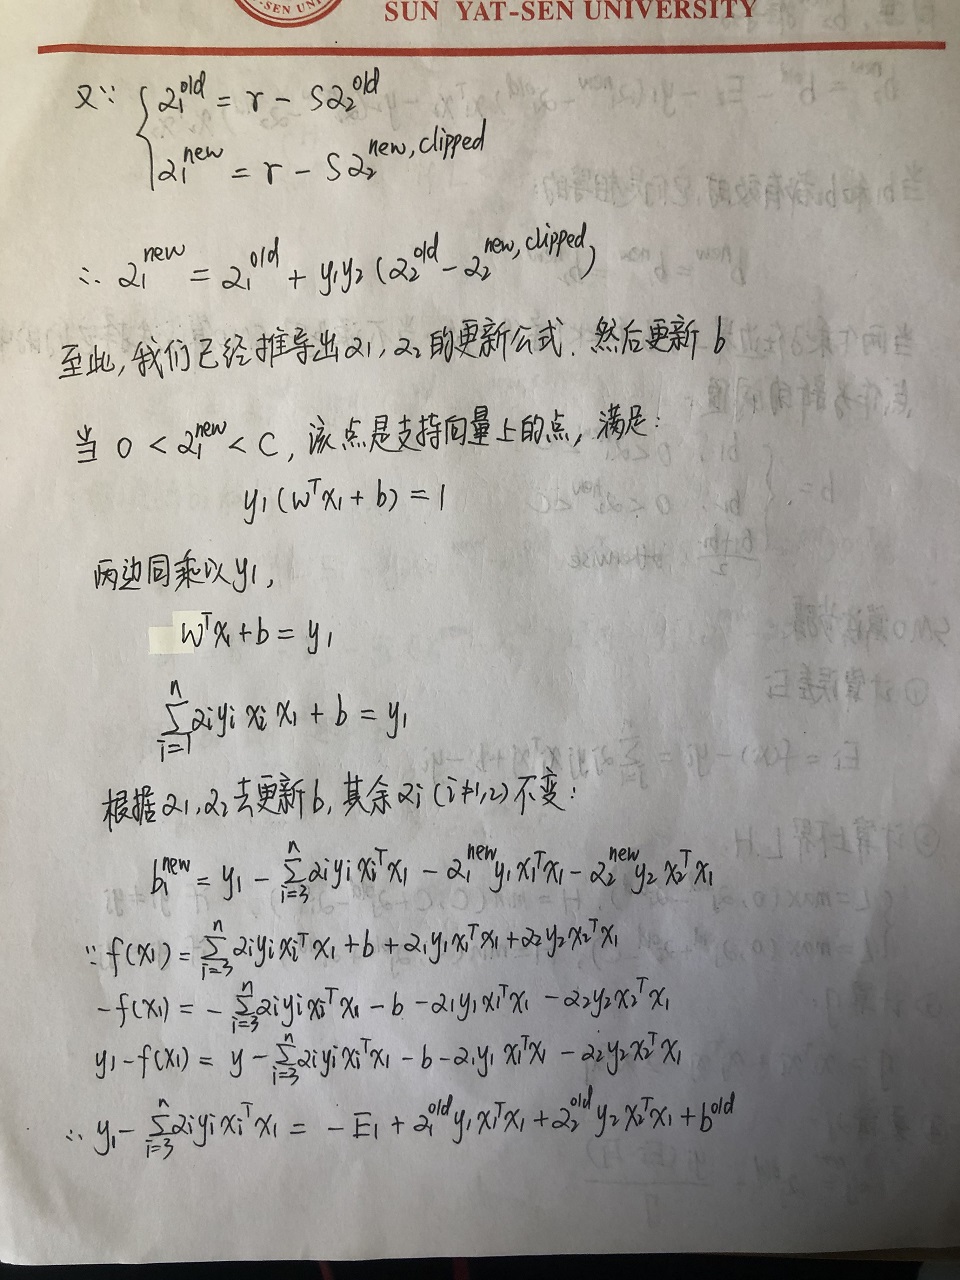 SEN UNIVERSITY
SUN YAT-SEN UNIVERSITY
又∵ { α₁^old = r - Sα₂^old
α₁^new = r - Sα₂^new,clipped
∴ α₁^new = α₁^old + y₁y₂ (α₂^old - α₂^new,clipped)
至此,我们已经推导出α₁,α₂的更新公式. 然后更新b
当 0 < α₁^new < C, 该点是支持向量上的点, 满足:
y₁(w^T x₁ + b) = 1
两边同乘以y₁,
w^T x₁ + b = y₁
∑_{i=1}^n αᵢyᵢ xᵢ x₁ + b = y₁
根据α₁,α₂去更新b,其余αᵢ(i≠1,2)不变:
b₁^new = y₁ - ∑_{i=3}^n αᵢyᵢxᵢ^T x₁ - α₁^new y₁x₁^T x₁ - α₂^new y₂x₂^T x₁
∵ f(x₁) = ∑_{i=3}^n αᵢyᵢxᵢ^T x₁ + b + α₁y₁x₁^T x₁ + α₂y₂x₂^T x₁
-f(x₁) = - ∑_{i=3}^n αᵢyᵢxᵢ^T x₁ - b - α₁y₁x₁^T x₁ - α₂y₂x₂^T x₁
y₁ - f(x₁) = y - ∑_{i=3}^n αᵢyᵢxᵢ^T x₁ - b - α₁y₁ x₁^T x₁ - α₂y₂x₂^T x₁
∴ y₁ - ∑_{i=3}^n αᵢyᵢxᵢ^T x₁ = - E₁ + α₁^old y₁x₁^T x₁ + α₂^old y₂x₂^T x₁ + b^old